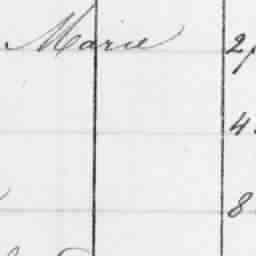 Marie 2
4
8